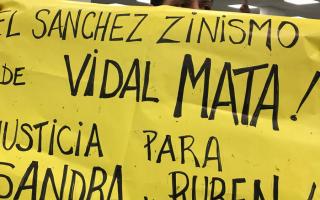 EL SANCHEZ ZINISMO
DE VIDAL MATA!
JUSTICIA PARA
SANDRA RUBEN!